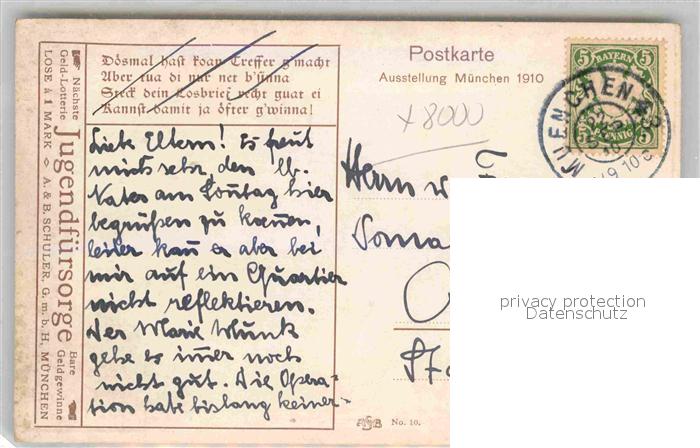 Dösmal hast koan Treffer g'macht
Aber tua di nur net b'sinna
Steck dein Losbrief recht guat ei
Kannst damit ja öfter g'winna!
Postkarte
Ausstellung München 1910
+8000
5 BAYERN 5
5 PFENNIG 5
MUENCHEN
Nächste
Geld-Lotterie
LOSE à 1 MARK
Jugendfürsorge
A. & B. SCHULER, G. m. b. H., MÜNCHEN
Bare
Geldgewinne
Liebe Eltern! Es freut
mich sehr, den lb.
Vater am Sonntag hier
begrüßen zu können,
leider kan er aber bei
mir auf ein Quartier
nicht reflektieren.
Der Marie Wunk
gehe es imer noch
nicht gut. Die Opera-
tion habe bislang keiner-
Herrn
No. 10.
privacy protection
Datenschutz